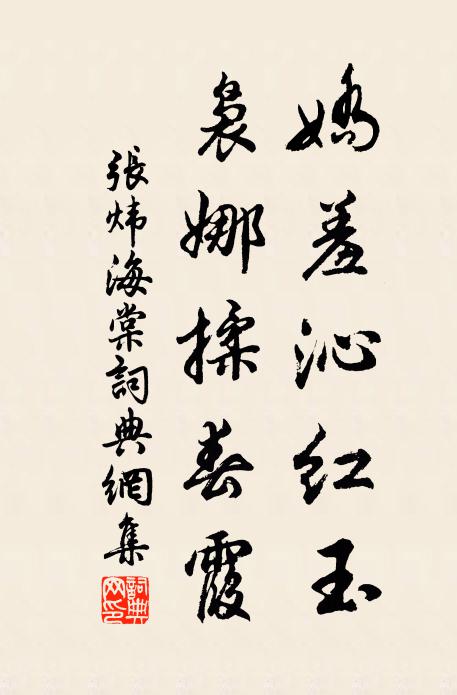 嬌羞沁紅玉
裊娜揉春霞
張煒海棠詞典網集
詞典网印